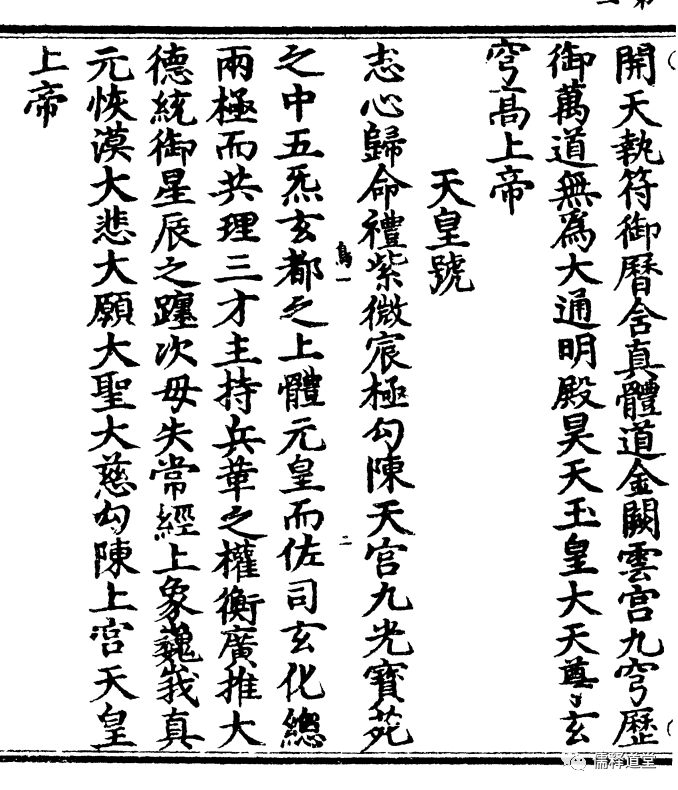 開天執符御曆含真體道金闕雲宮九穹歷
御萬道無為大通明殿昊天玉皇大天尊玄
穹高上帝
天皇號
志心歸命禮紫微宸極勾陳天宮九光寶苑
之中五炁玄都之上體元皇而佐司玄化總
兩極而共理三才主持兵革之權衡廣推大
德統御星辰之躔次毋失常經上象巍峩真
元恢漠大悲大願大聖大慈勾陳上宮天皇
上帝
鳥一
二
儒释道堂